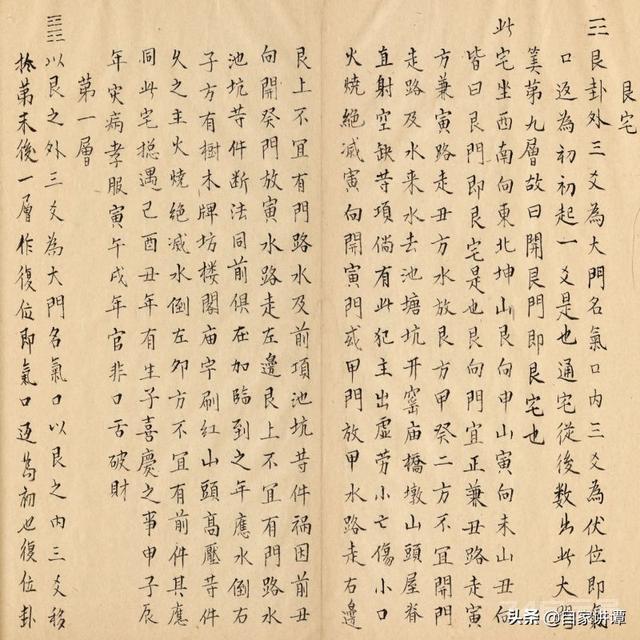 艮宅
三 艮卦外三爻為大門名氣口內三爻為伏位即氣
口返為初初起一爻是也通宅從後数出此大門
筭第九層故曰開艮門即艮宅也
此宅坐西南向東北坤山艮向申山寅向未山丑向
皆曰艮門即艮宅是也艮向門宜正兼丑路走寅
方兼寅路走丑方水放艮方甲癸二方不宜開門
走路及水来水去池塘坑井窑庙橋墩山頭屋脊
直射空缺䓁項倘有此犯主出虚劳小亡傷小口
火燒絕减寅向開寅門或甲門放甲水路走右邊
艮上不宜有門路水及前項池坑䓁件祸因前丑
向開癸門放寅水路走左邊艮上不宜有門路水
池坑䓁件断法同前俱在加臨到之年應水倒右
子方有樹木牌坊楼閣庙宇刷红山頭髙壓䓁件
久之主火燒絕减水倒左夘方不宜有前件其應
同此宅揔遇己酉丑年有生子喜慶之事申子辰
年灾病孝服寅午戌年官非口舌破財
第一層
以艮之外三爻為大門名氣口以艮之内三爻移
扵第末後一層作復位即氣口返為初也復位卦
头条 @自家讲谭